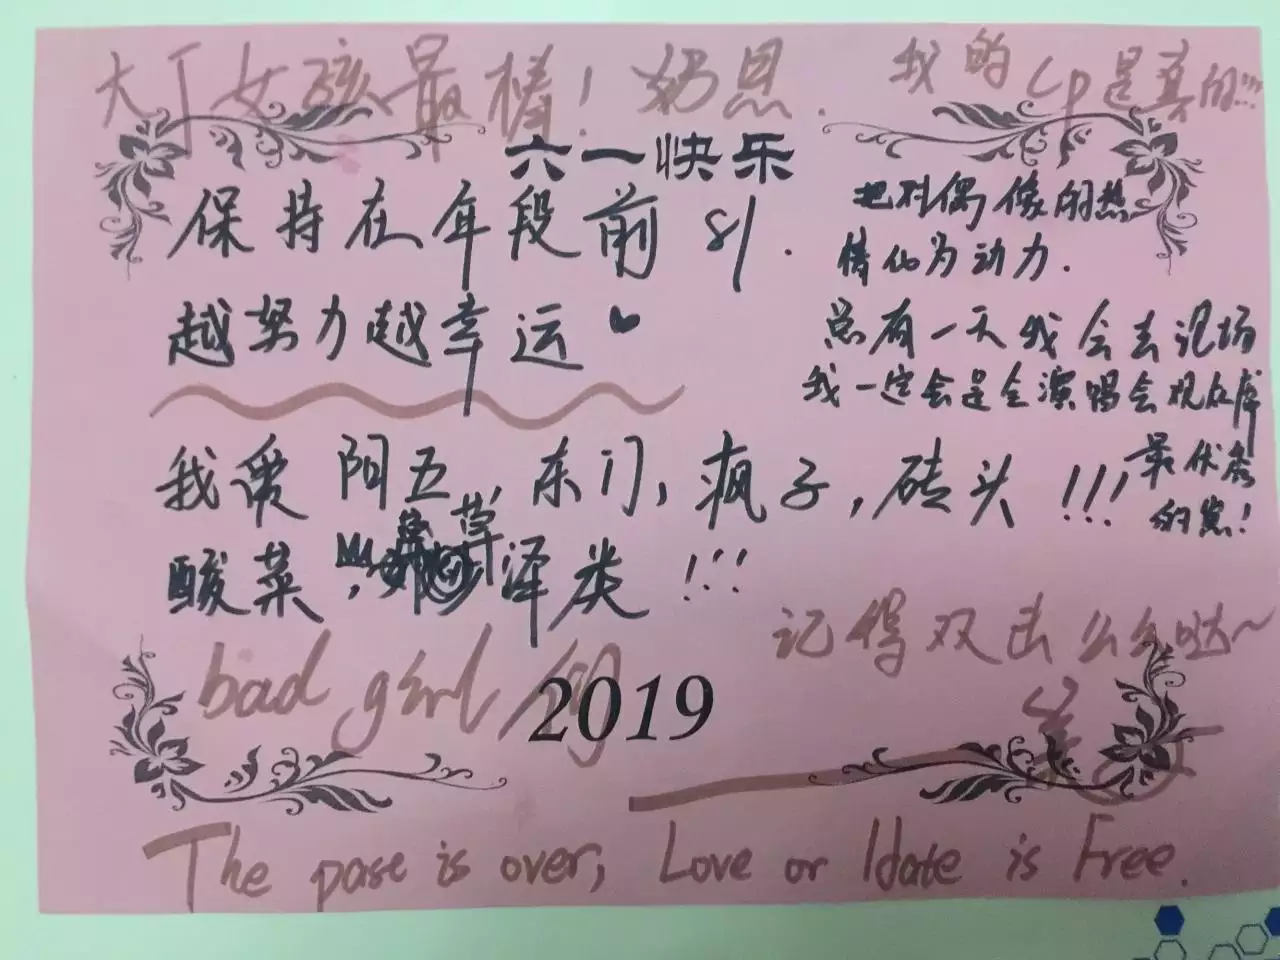 大丁女孩最棒！奶思.
我的cp是真的!!!
六一快乐
保持在年段前81.
越努力越幸运
把对偶像的热
情化为动力.
总有一天我会去现场
我一定会是全演唱会观众席
最优秀
的崽!
我爱 阳五、东门,疯子,砖头!!!
酸菜,泽类!!!
记得双击么么哒~
bad girl
2019
The past is over, Love or Idate is Free.